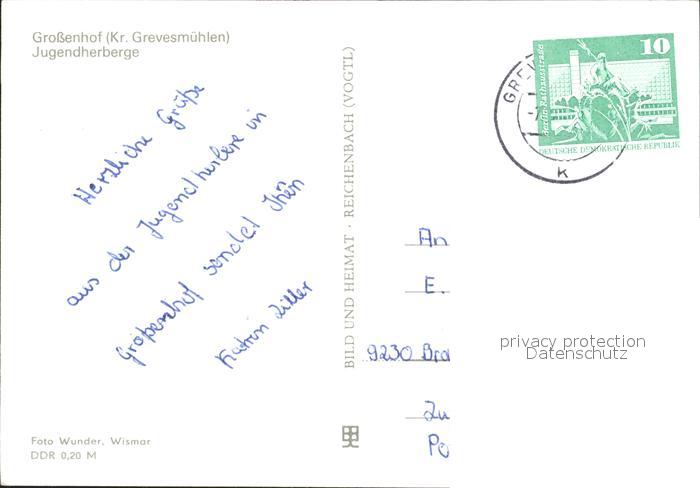 Großenhof (Kr. Grevesmühlen)
Jugendherberge
Herzliche Grüße
aus der Jugendherbere in
Großenhof sendet Ihen
Katrin Ziller
Foto Wunder, Wismar
DDR 0,20 M
BILD UND HEIMAT · REICHENBACH (VOGTL)
GREV
k
10
Berlin, Rathausstraße
DEUTSCHE DEMOKRATISCHE REPUBLIK
An
E.
9230 Bra
Zu
Po
privacy protection
Datenschutz